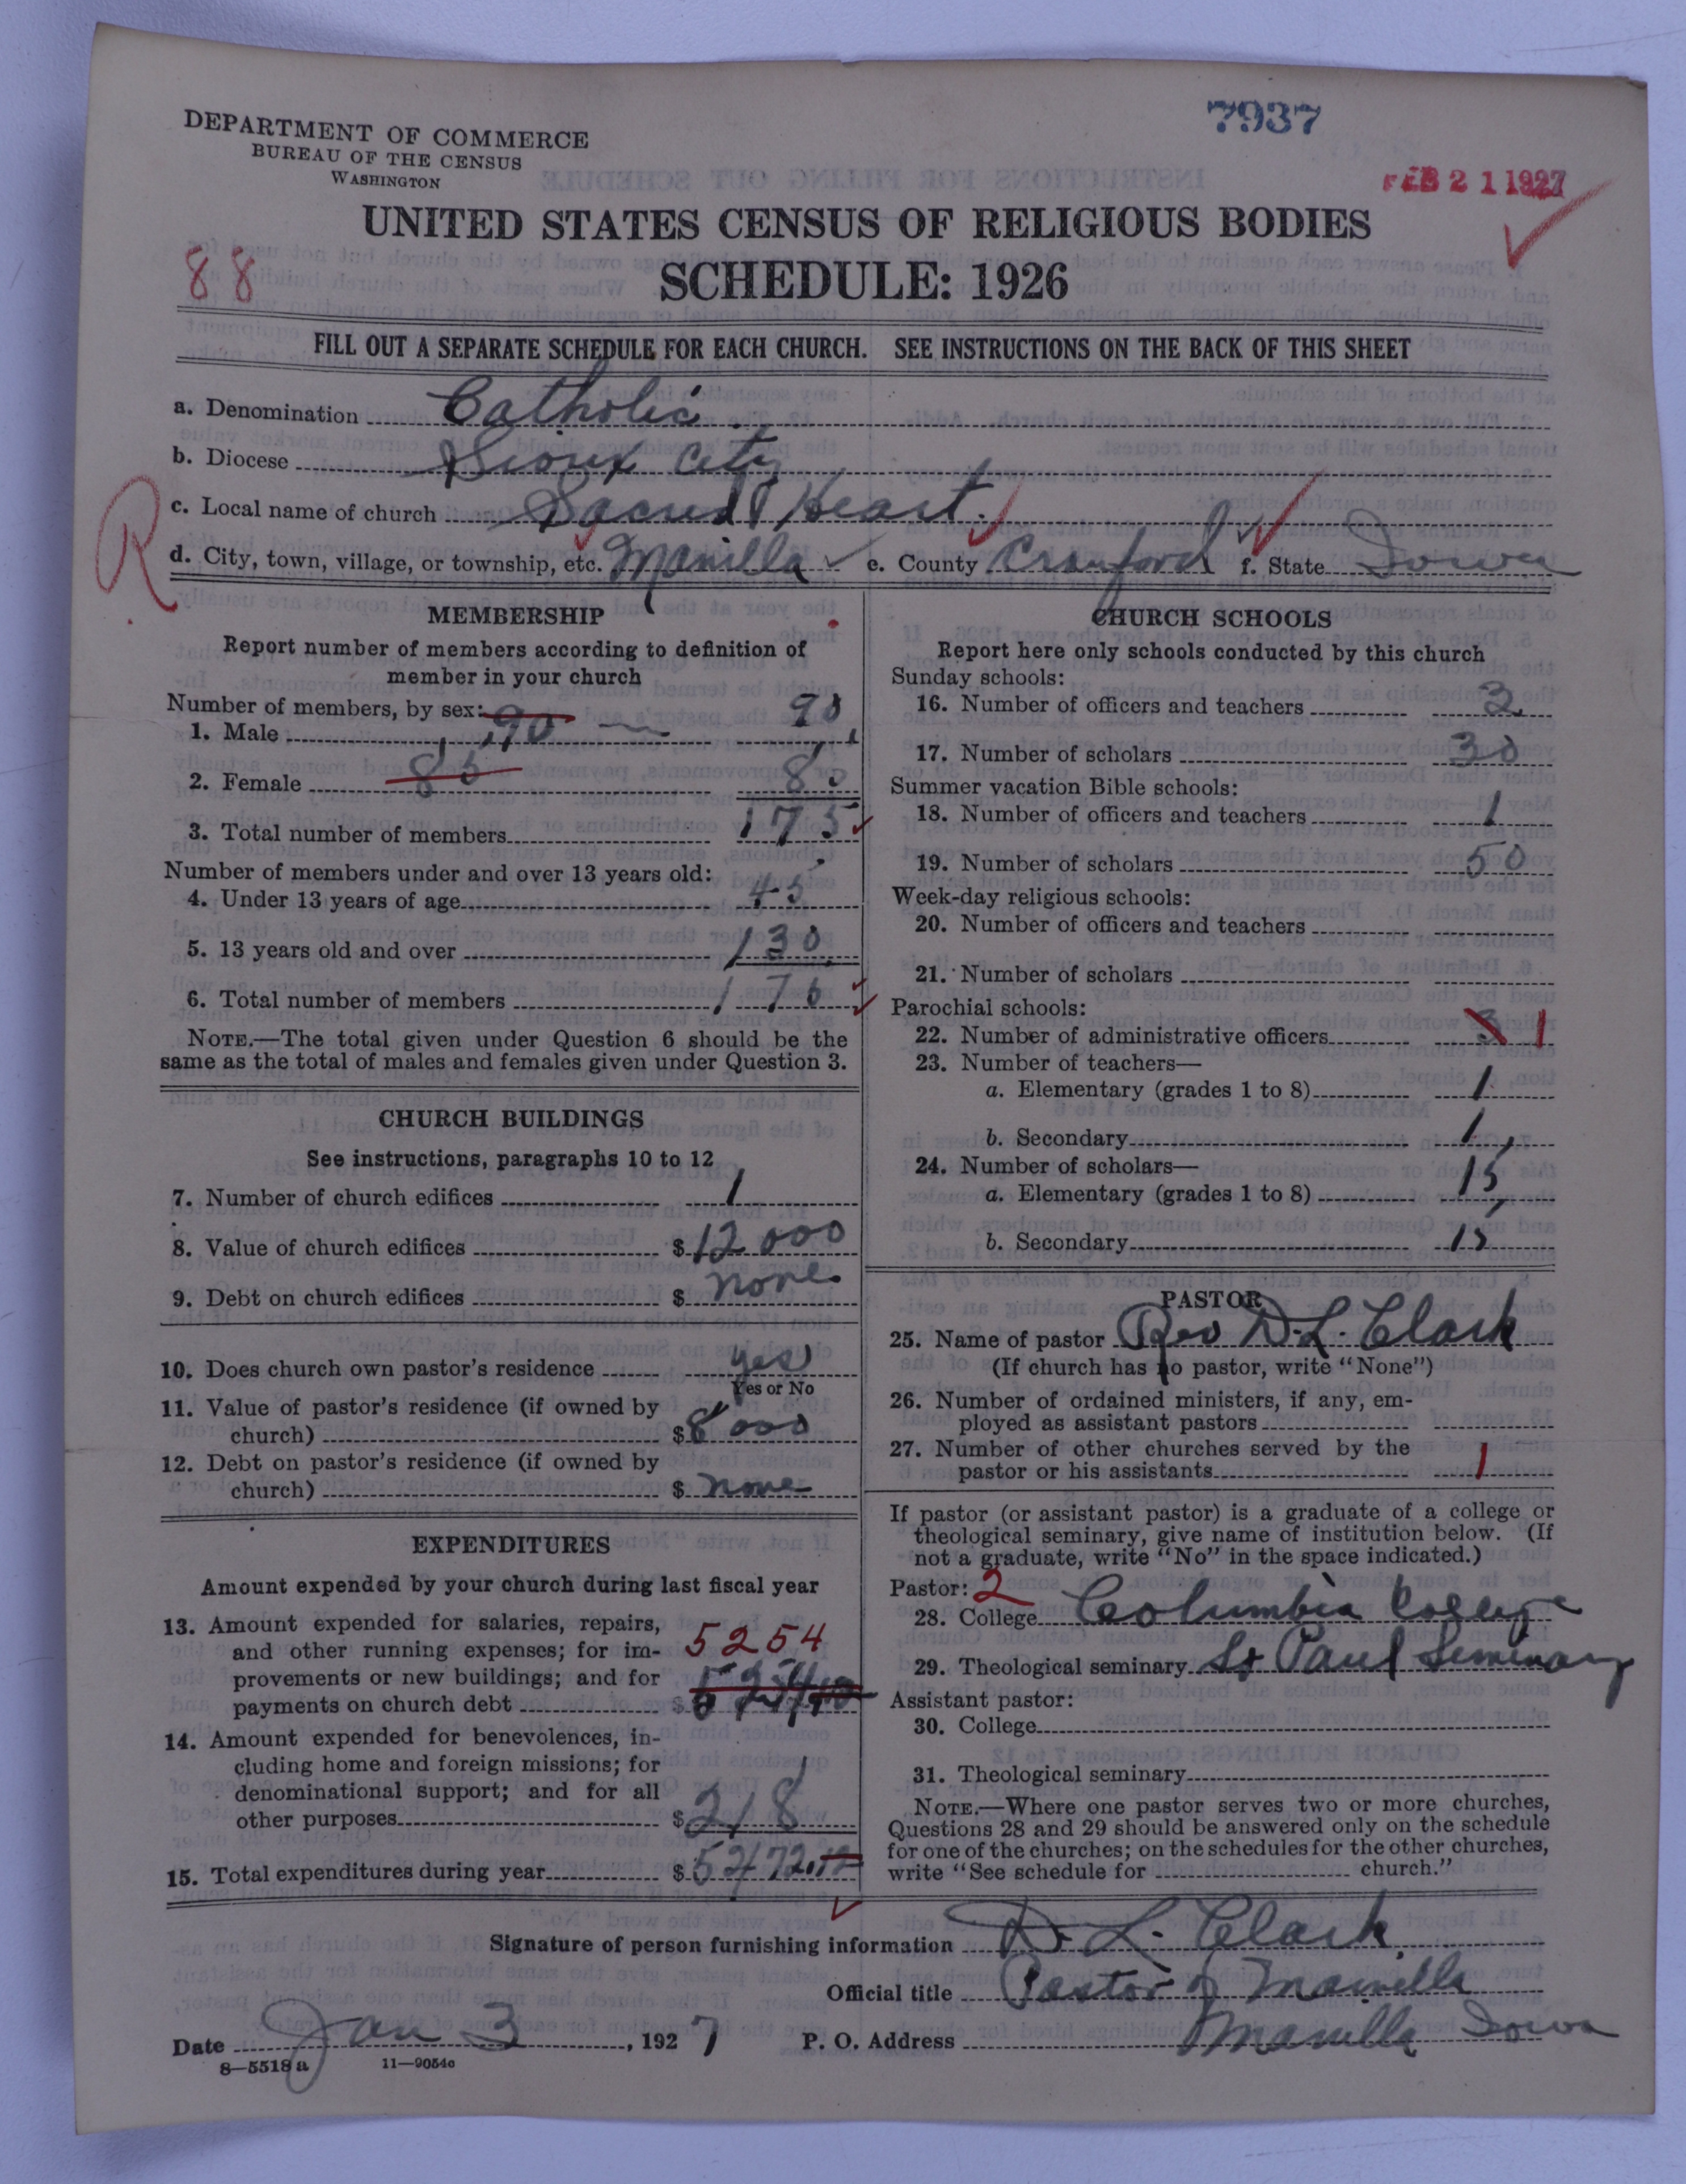 7937
DEPARTMENT OF COMMERCE
BUREAU OF THE CENSUS
WASHINGTON
FEB 21 1927
UNITED STATES CENSUS OF RELIGIOUS BODIES
88
SCHEDULE: 1926
FILL OUT A SEPARATE SCHEDULE FOR EACH CHURCH. SEE INSTRUCTIONS ON THE BACK OF THIS SHEET
a. Denomination Catholic
b. Diocese Sioux City
c. Local name of church Sacred Heart.
R
d. City, town, village, or township, etc. Manilla e. County Crawford f. State Iowa
MEMBERSHIP
Report number of members according to definition of
member in your church
Number of members, by sex:
1. Male 90 90
2. Female 85 85
3. Total number of members 175
Number of members under and over 13 years old:
4. Under 13 years of age 45
5. 13 years old and over 130
6. Total number of members 175
NOTE.—The total given under Question 6 should be the
same as the total of males and females given under Question 3.
CHURCH BUILDINGS
See instructions, paragraphs 10 to 12
7. Number of church edifices 1
8. Value of church edifices $12000
9. Debt on church edifices $ none
10. Does church own pastor's residence yes
Yes or No
11. Value of pastor's residence (if owned by
church) $8000
12. Debt on pastor's residence (if owned by
church) $ none
EXPENDITURES
Amount expended by your church during last fiscal year
13. Amount expended for salaries, repairs,
and other running expenses; for im- 5254
provements or new buildings; and for
payments on church debt $ 5254.12
14. Amount expended for benevolences, in-
cluding home and foreign missions; for
denominational support; and for all
other purposes $218
15. Total expenditures during year $5472.12
CHURCH SCHOOLS
Report here only schools conducted by this church
Sunday schools:
16. Number of officers and teachers 3
17. Number of scholars 30
Summer vacation Bible schools:
18. Number of officers and teachers 1
19. Number of scholars 50
Week-day religious schools:
20. Number of officers and teachers
21. Number of scholars
Parochial schools:
22. Number of administrative officers 3 1
23. Number of teachers—
a. Elementary (grades 1 to 8) 1
b. Secondary 1
24. Number of scholars—
a. Elementary (grades 1 to 8) 15
b. Secondary 15
PASTOR
25. Name of pastor Rev D. L. Clark
(If church has no pastor, write "None")
26. Number of ordained ministers, if any, em-
ployed as assistant pastors
27. Number of other churches served by the
pastor or his assistants 1
If pastor (or assistant pastor) is a graduate of a college or
theological seminary, give name of institution below. (If
not a graduate, write "No" in the space indicated.)
Pastor: 2
28. College Columbia College
29. Theological seminary St Paul Seminary
Assistant pastor:
30. College
31. Theological seminary
NOTE.—Where one pastor serves two or more churches,
Questions 28 and 29 should be answered only on the schedule
for one of the churches; on the schedules for the other churches,
write "See schedule for church."
Signature of person furnishing information D. L. Clark
Official title Pastor of Manilla
Date Jan 3, 1927 P. O. Address Manilla Iowa
8—5518a 11—9054c